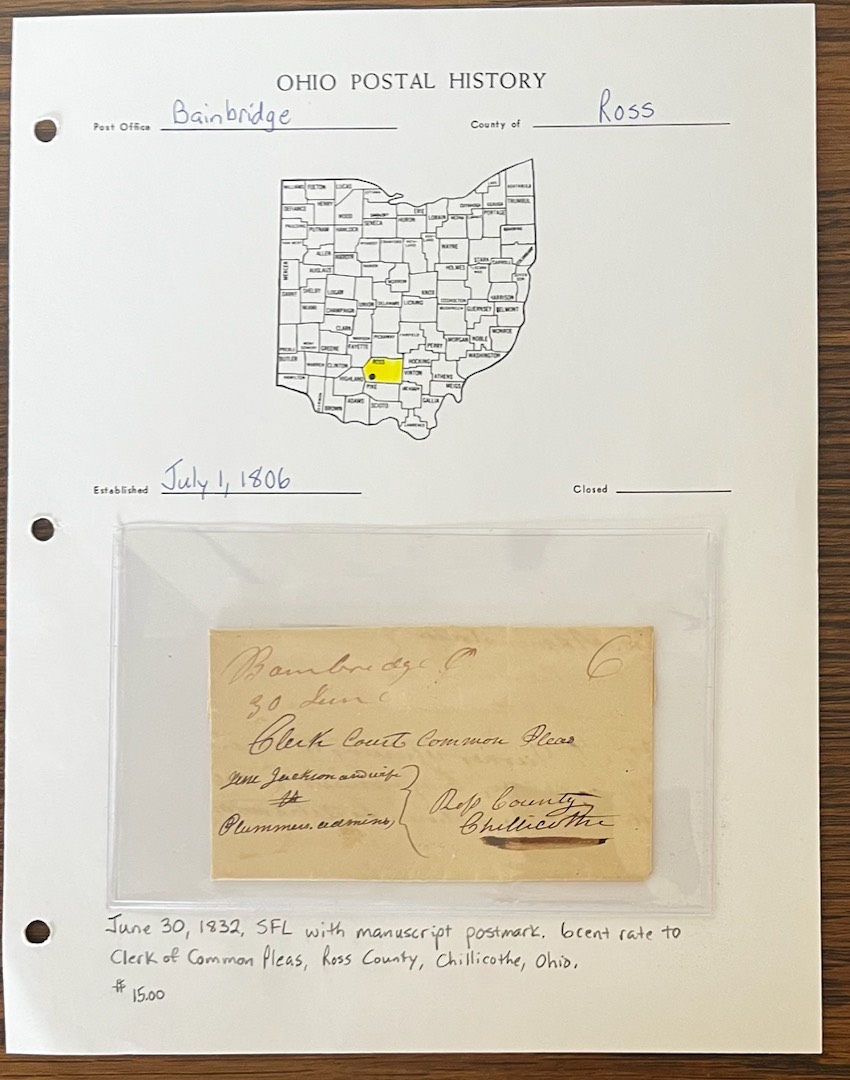 OHIO POSTAL HISTORY
Post Office Bainbridge County of Ross
WILLIAMS FULTON LUCAS
DEFIANCE HENRY WOOD ERIE LORAIN PORTAGE TRUMBULL
PAULDING PUTNAM HANCOCK SENECA HURON
ALLEN HARDIN WAYNE STARK CARROLL
MERCER AUGLAIZE HOLMES
DARKE SHELBY LOGAN UNION DELAWARE LICKING KNOX COSHOCTON HARRISON
MIAMI CHAMPAIGN GUERNSEY BELMONT
CLARK PERRY MORGAN NOBLE MONROE
GREENE FAYETTE PICKAWAY FAIRFIELD WASHINGTON
BUTLER WARREN CLINTON ROSS HOCKING VINTON ATHENS
HAMILTON HIGHLAND PIKE JACKSON MEIGS
BROWN ADAMS SCIOTO GALLIA
LAWRENCE
Established July 1, 1806 Closed
Bainbridge O 6
30 June
Clerk Court Common Pleas
Jackson and wife
vs
Plummers. admins,
Ross County
Chillicothe
June 30, 1832, SFL with manuscript postmark. 6cent rate to
Clerk of Common Pleas, Ross County, Chillicothe, Ohio.
$ 15.00